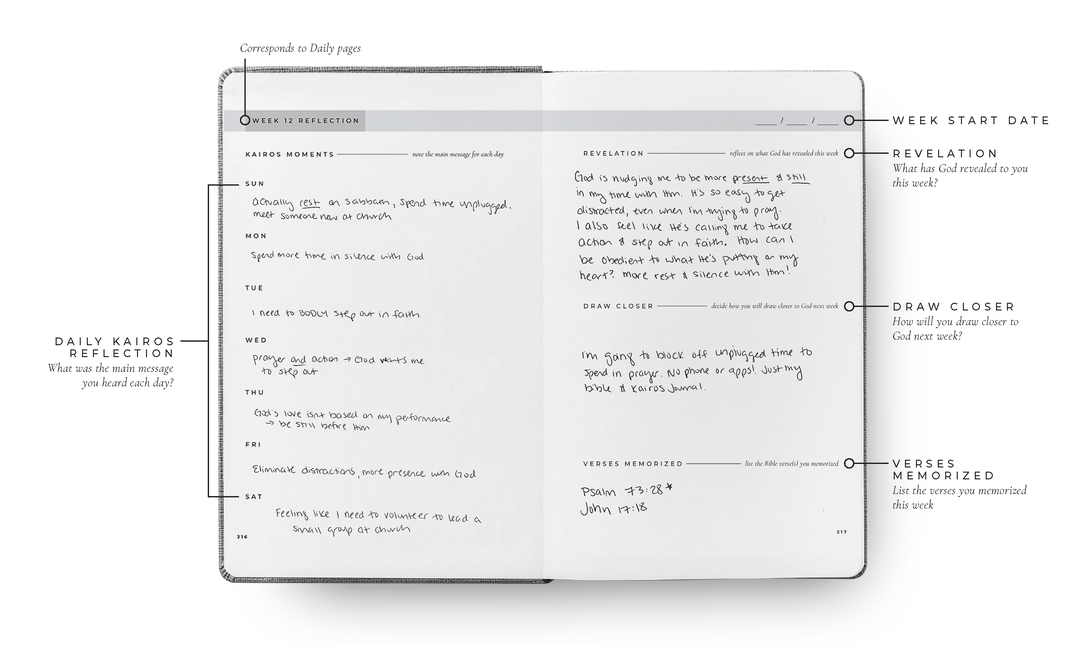 Corresponds to Daily pages
WEEK 12 REFLECTION
___ / ___ / ___
WEEK START DATE
KAIROS MOMENTS
note the main message for each day
SUN
actually rest on Sabbath, spend time unplugged,
meet someone new at church
MON
Spend more time in silence with God
TUE
I need to BODLY step out in faith
WED
prayer and action → God wants me
to step out
THU
God's love isn't based on my performance
→ be still before Him
FRI
Eliminate distractions, more presence with God
SAT
Feeling like I need to volunteer to lead a
small group at church
216
DAILY KAIROS
REFLECTION
What was the main message
you heard each day?
REVELATION
reflect on what God has revealed this week
God is nudging me to be more present & still
in my time with Him. It's so easy to get
distracted, even when I'm trying to pray.
I also feel like He's calling me to take
action & step out in faith. How can I
be obedient to what He's putting on my
heart? More rest & silence with Him!
REVELATION
What has God revealed to you
this week?
DRAW CLOSER
decide how you will draw closer to God next week
I'm going to block off unplugged time to
spend in prayer. No phone or apps! Just my
bible & Kairos Journal.
DRAW CLOSER
How will you draw closer to
God next week?
VERSES MEMORIZED
list the Bible verse(s) you memorized
Psalm 73:28*
John 17:18
217
VERSES
MEMORIZED
List the verses you memorized
this week